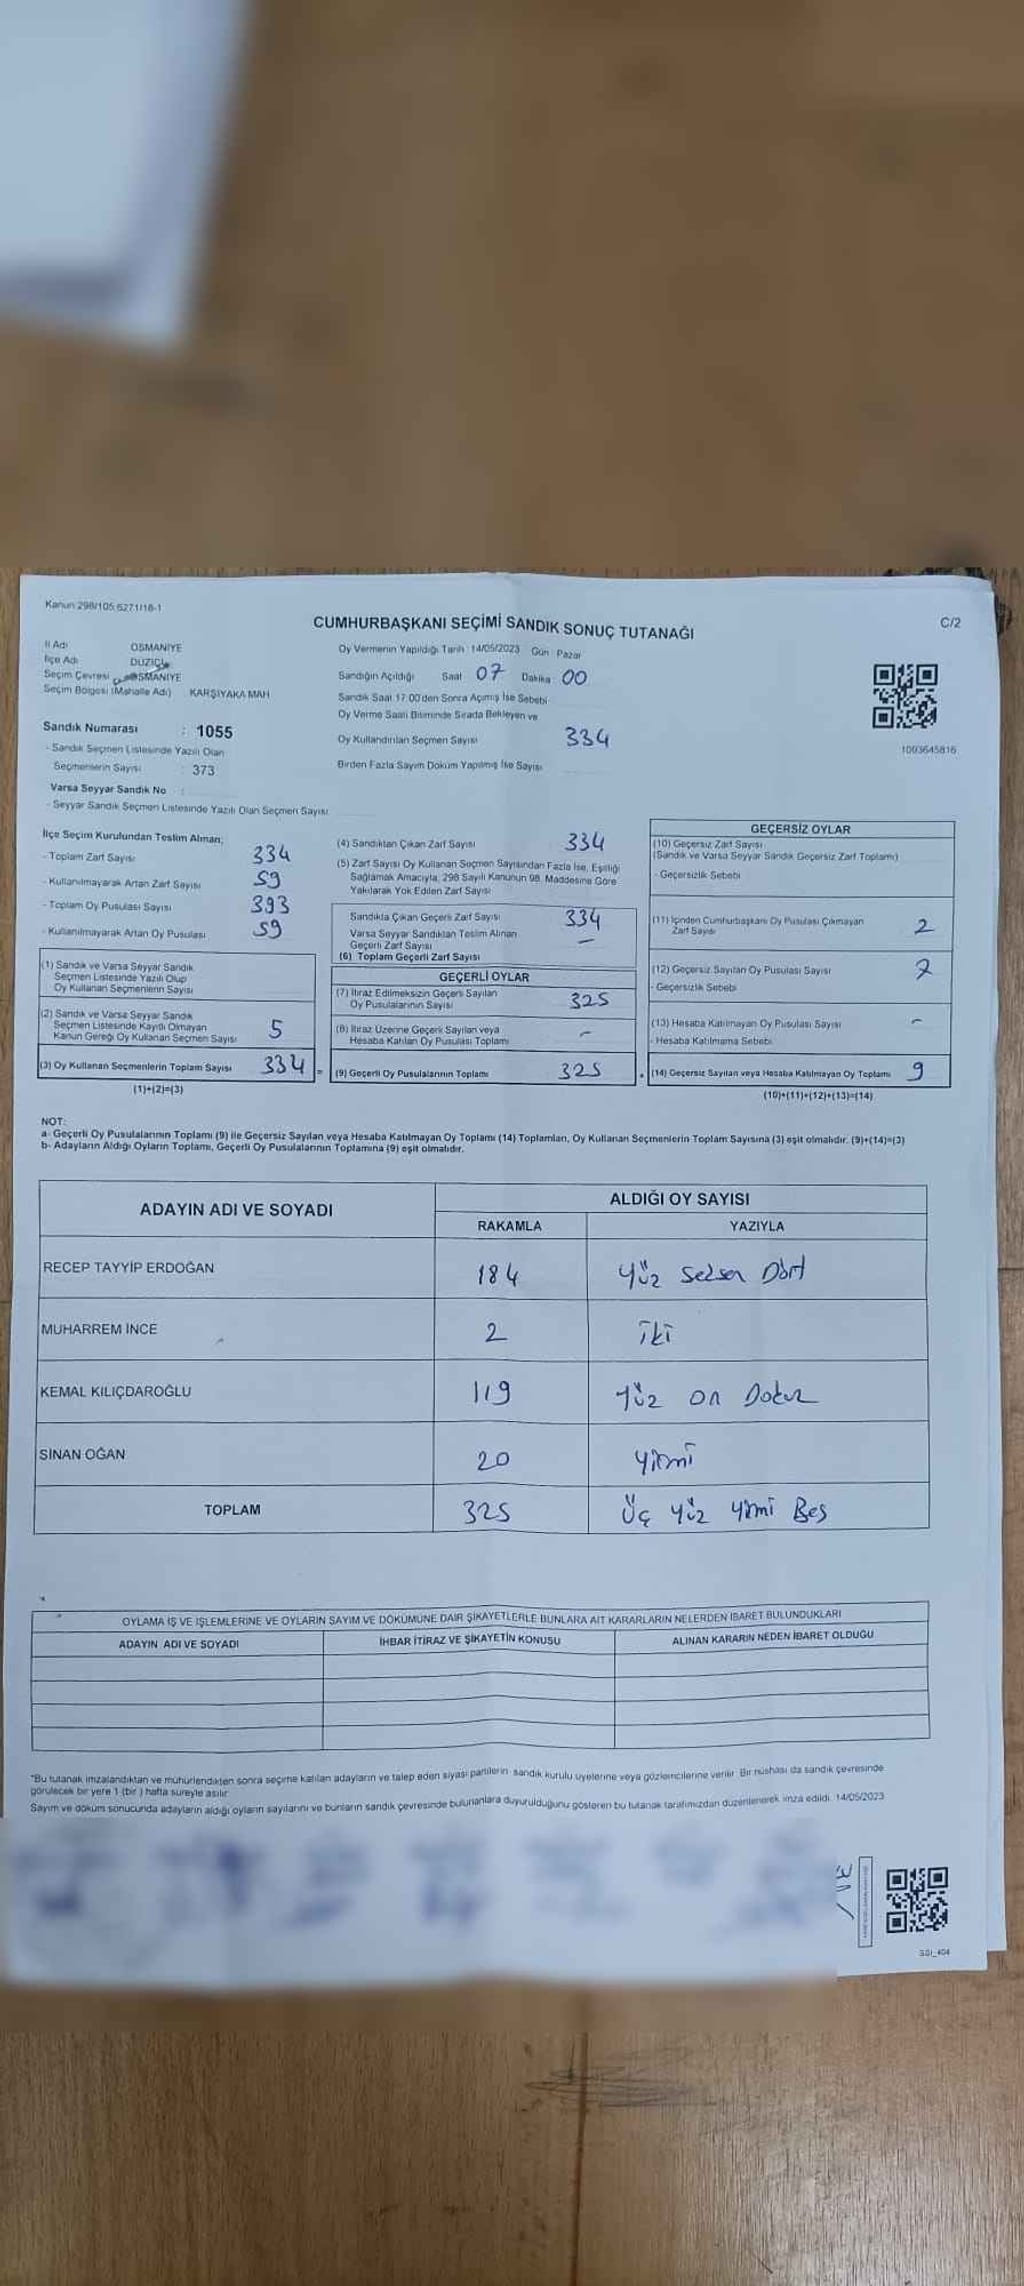 Kanun 298/105 6271/18-1
C/2
CUMHURBAŞKANI SEÇİMİ SANDIK SONUÇ TUTANAĞI
İl Adı OSMANİYE
İlçe Adı DÜZİÇİ
Seçim Çevresi OSMANİYE
Seçim Bölgesi (Mahalle Adı) KARŞIYAKA MAH
Sandık Numarası : 1055
- Sandık Seçmen Listesinde Yazılı Olan
Seçmenlerin Sayısı : 373
Varsa Seyyar Sandık No :
- Seyyar Sandık Seçmen Listesinde Yazılı Olan Seçmen Sayısı
Oy Vermenin Yapıldığı Tarih 14/05/2023 Gün Pazar
Sandığın Açıldığı Saat 07 Dakika 00
Sandık Saat 17:00'den Sonra Açılmış İse Sebebi
Oy Verme Saati Bitiminde Sırada Bekleyen ve
Oy Kullandırılan Seçmen Sayısı 334
Birden Fazla Sayım Döküm Yapılmış İse Sayısı
1093645816
İlçe Seçim Kurulundan Teslim Alınan;
- Toplam Zarf Sayısı 334
- Kullanılmayarak Artan Zarf Sayısı 59
- Toplam Oy Pusulası Sayısı 393
- Kullanılmayarak Artan Oy Pusulası 59
(1) Sandık ve Varsa Seyyar Sandık
Seçmen Listesinde Yazılı Olup
Oy Kullanan Seçmenlerin Sayısı
(2) Sandık ve Varsa Seyyar Sandık
Seçmen Listesinde Kayıtlı Olmayan
Kanun Gereği Oy Kullanan Seçmen Sayısı 5
(3) Oy Kullanan Seçmenlerin Toplam Sayısı 334 =
(1)+(2)=(3)
(4) Sandıktan Çıkan Zarf Sayısı 334
(5) Zarf Sayısı Oy Kullanan Seçmen Sayısından Fazla İse, Eşitliği
Sağlamak Amacıyla, 298 Sayılı Kanunun 98. Maddesine Göre
Yakılarak Yok Edilen Zarf Sayısı
Sandıkta Çıkan Geçerli Zarf Sayısı 334
Varsa Seyyar Sandıktan Teslim Alınan
Geçerli Zarf Sayısı –
(6) Toplam Geçerli Zarf Sayısı
GEÇERLİ OYLAR
(7) İtiraz Edilmeksizin Geçerli Sayılan
Oy Pusulalarının Sayısı 325
(8) İtiraz Üzerine Geçerli Sayılan veya
Hesaba Katılan Oy Pusulası Toplamı –
(9) Geçerli Oy Pusulalarının Toplamı 325
GEÇERSİZ OYLAR
(10) Geçersiz Zarf Sayısı
(Sandık ve Varsa Seyyar Sandık Geçersiz Zarf Toplamı)
- Geçersizlik Sebebi
(11) İçinden Cumhurbaşkanı Oy Pusulası Çıkmayan
Zarf Sayısı 2
(12) Geçersiz Sayılan Oy Pusulası Sayısı 7
- Geçersizlik Sebebi
(13) Hesaba Katılmayan Oy Pusulası Sayısı –
- Hesaba Katılmama Sebebi
(14) Geçersiz Sayılan veya Hesaba Katılmayan Oy Toplamı 9
(10)+(11)+(12)+(13)=(14)
NOT:
a- Geçerli Oy Pusulalarının Toplamı (9) ile Geçersiz Sayılan veya Hesaba Katılmayan Oy Toplamı (14) Toplamları, Oy Kullanan Seçmenlerin Toplam Sayısına (3) eşit olmalıdır. (9)+(14)=(3)
b- Adayların Aldığı Oyların Toplamı, Geçerli Oy Pusulalarının Toplamına (9) eşit olmalıdır.
ADAYIN ADI VE SOYADI ALDIĞI OY SAYISI
RAKAMLA YAZIYLA
RECEP TAYYİP ERDOĞAN 184 Yüz Seksen Dört
MUHARREM İNCE 2 İki
KEMAL KILIÇDAROĞLU 119 Yüz On Dokuz
SİNAN OĞAN 20 Yirmi
TOPLAM 325 Üç Yüz Yirmi Beş
OYLAMA İŞ VE İŞLEMLERİNE VE OYLARIN SAYIM VE DÖKÜMÜNE DAİR ŞİKAYETLERLE BUNLARA AİT KARARLARIN NELERDEN İBARET BULUNDUKLARI
ADAYIN ADI VE SOYADI İHBAR İTİRAZ VE ŞİKAYETİN KONUSU ALINAN KARARIN NEDEN İBARET OLDUĞU
*Bu tutanak imzalandıktan ve mühürlendikten sonra seçime katılan adayların ve talep eden siyasi partilerin sandık kurulu üyelerine veya gözlemcilerine verilir. Bir nüshası da sandık çevresinde
görülecek bir yere 1 (bir) hafta süreyle asılır.
Sayım ve döküm sonucunda adayların aldığı oyların sayılarını ve bunların sandık çevresinde bulunanlara duyurulduğunu gösteren bu tutanak tarafımızdan düzenlenerek imza edildi. 14/05/2023